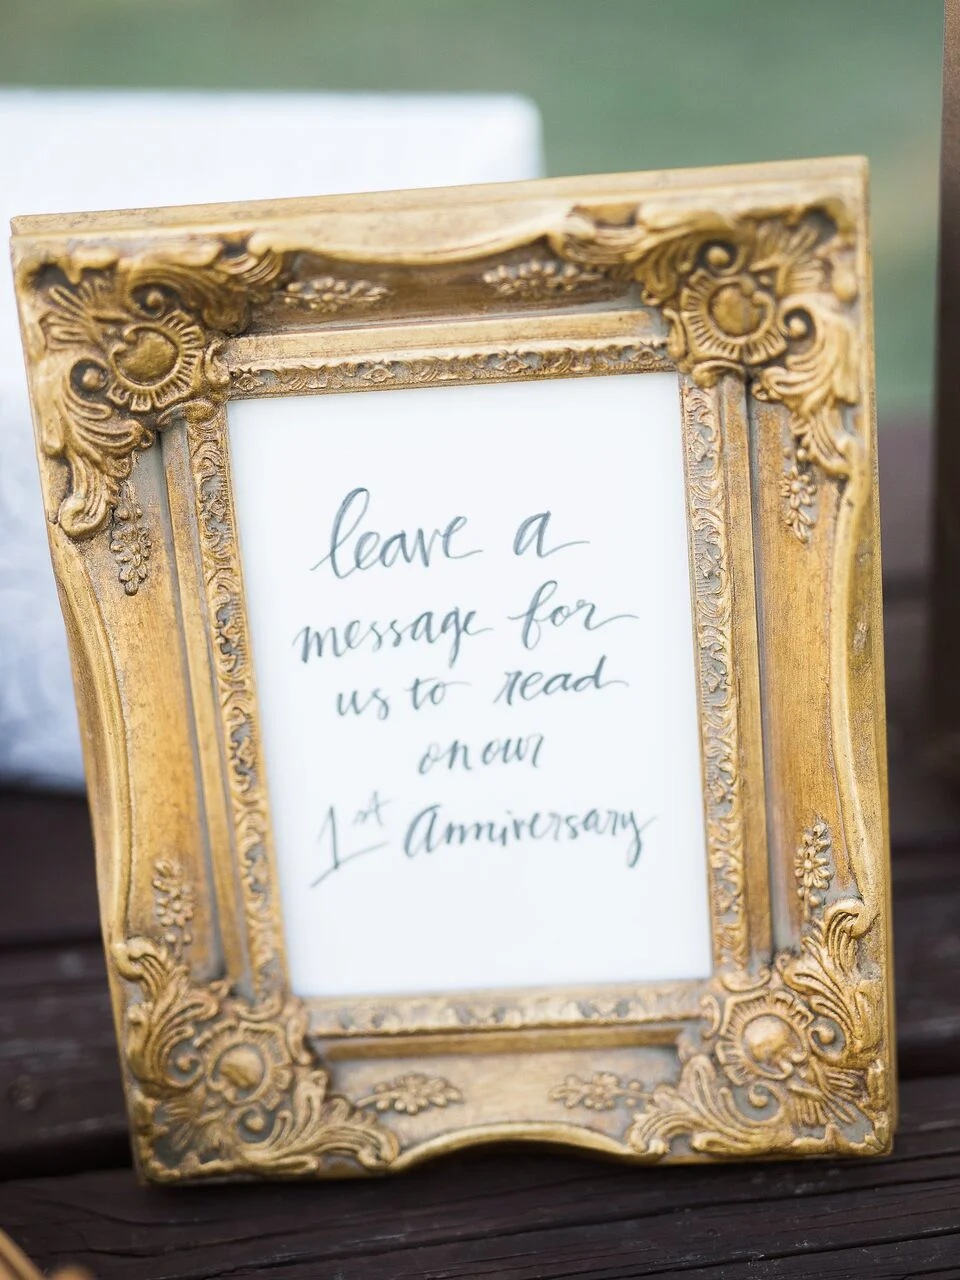 leave a
message for
us to read
on our
1st Anniversary